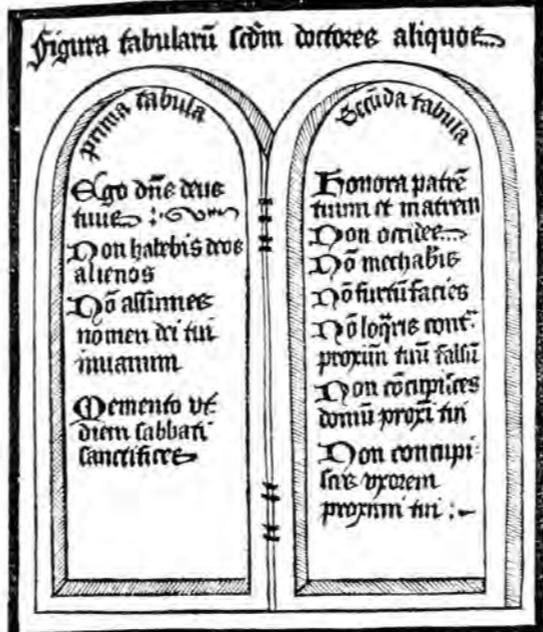 Figura tabularū scđm doctores aliquos
prima tabula
Ego dn̄s deus
tuus :
Non habebis deos
alienos
Nō assumes
nomen dei tui
inuanum
Memento vt
diem sabbati
sanctifices
Secūda tabula
Honora patrē
tuum et matrem
Non occides
Nō mechab̄is
Nō furtū facies
Nō loq̄ris cont̄
proxim̄ tuū falsū
Non cōcupisces
domū proxī tui
Non concupi⸗
scis vxorem
proximi tui :